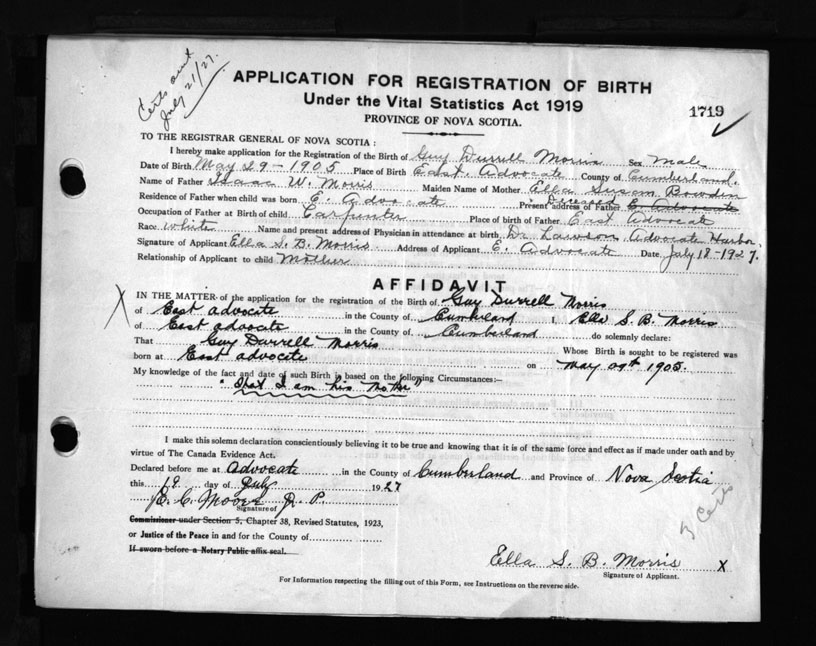 Certs sent
July 21/27.
APPLICATION FOR REGISTRATION OF BIRTH
Under the Vital Statistics Act 1919
PROVINCE OF NOVA SCOTIA.
1719
TO THE REGISTRAR GENERAL OF NOVA SCOTIA:
I hereby make application for the Registration of the Birth of Guy Durrell Morris Sex Male
Date of Birth May 29-1905 Place of Birth East Advocate County of Cumberland.
Name of Father Isaac W. Morris Maiden Name of Mother Ella Susan Bowden
Residence of Father when child was born E. Advocate Present address of Father Diseased E. Advocate
Occupation of Father at Birth of child Carpenter Place of birth of Father East Advocate
Race White Name and present address of Physician in attendance at birth Dr. Lawson, Advocate Harbor.
Signature of Applicant Ella S. B. Morris Address of Applicant E. Advocate Date July 18-1927.
Relationship of Applicant to child Mother
AFFIDAVIT
X
IN THE MATTER of the application for the registration of the Birth of Guy Durrell Morris
of East advocate in the County of Cumberland I, Ella S. B. Morris
of East advocate in the County of Cumberland do solemnly declare:
That Guy Durrell Morris Whose Birth is sought to be registered was
born at East advocate on May 29th 1905.
My knowledge of the fact and date of such Birth is based on the following Circumstances:—
"That I am his Mother"
I make this solemn declaration conscientiously believing it to be true and knowing that it is of the same force and effect as if made under oath and by
virtue of The Canada Evidence Act.
Declared before me at Advocate in the County of Cumberland and Province of Nova Scotia
this 19 day of July 1927
E. C. Moore J. P.
Signature of
Commissioner under Section 5, Chapter 38, Revised Statutes, 1923,
or Justice of the Peace in and for the County of
If sworn before a Notary Public affix seal.
Certs
Ella S. B. Morris X
Signature of Applicant.
For Information respecting the filling out of this Form, see Instructions on the reverse side.